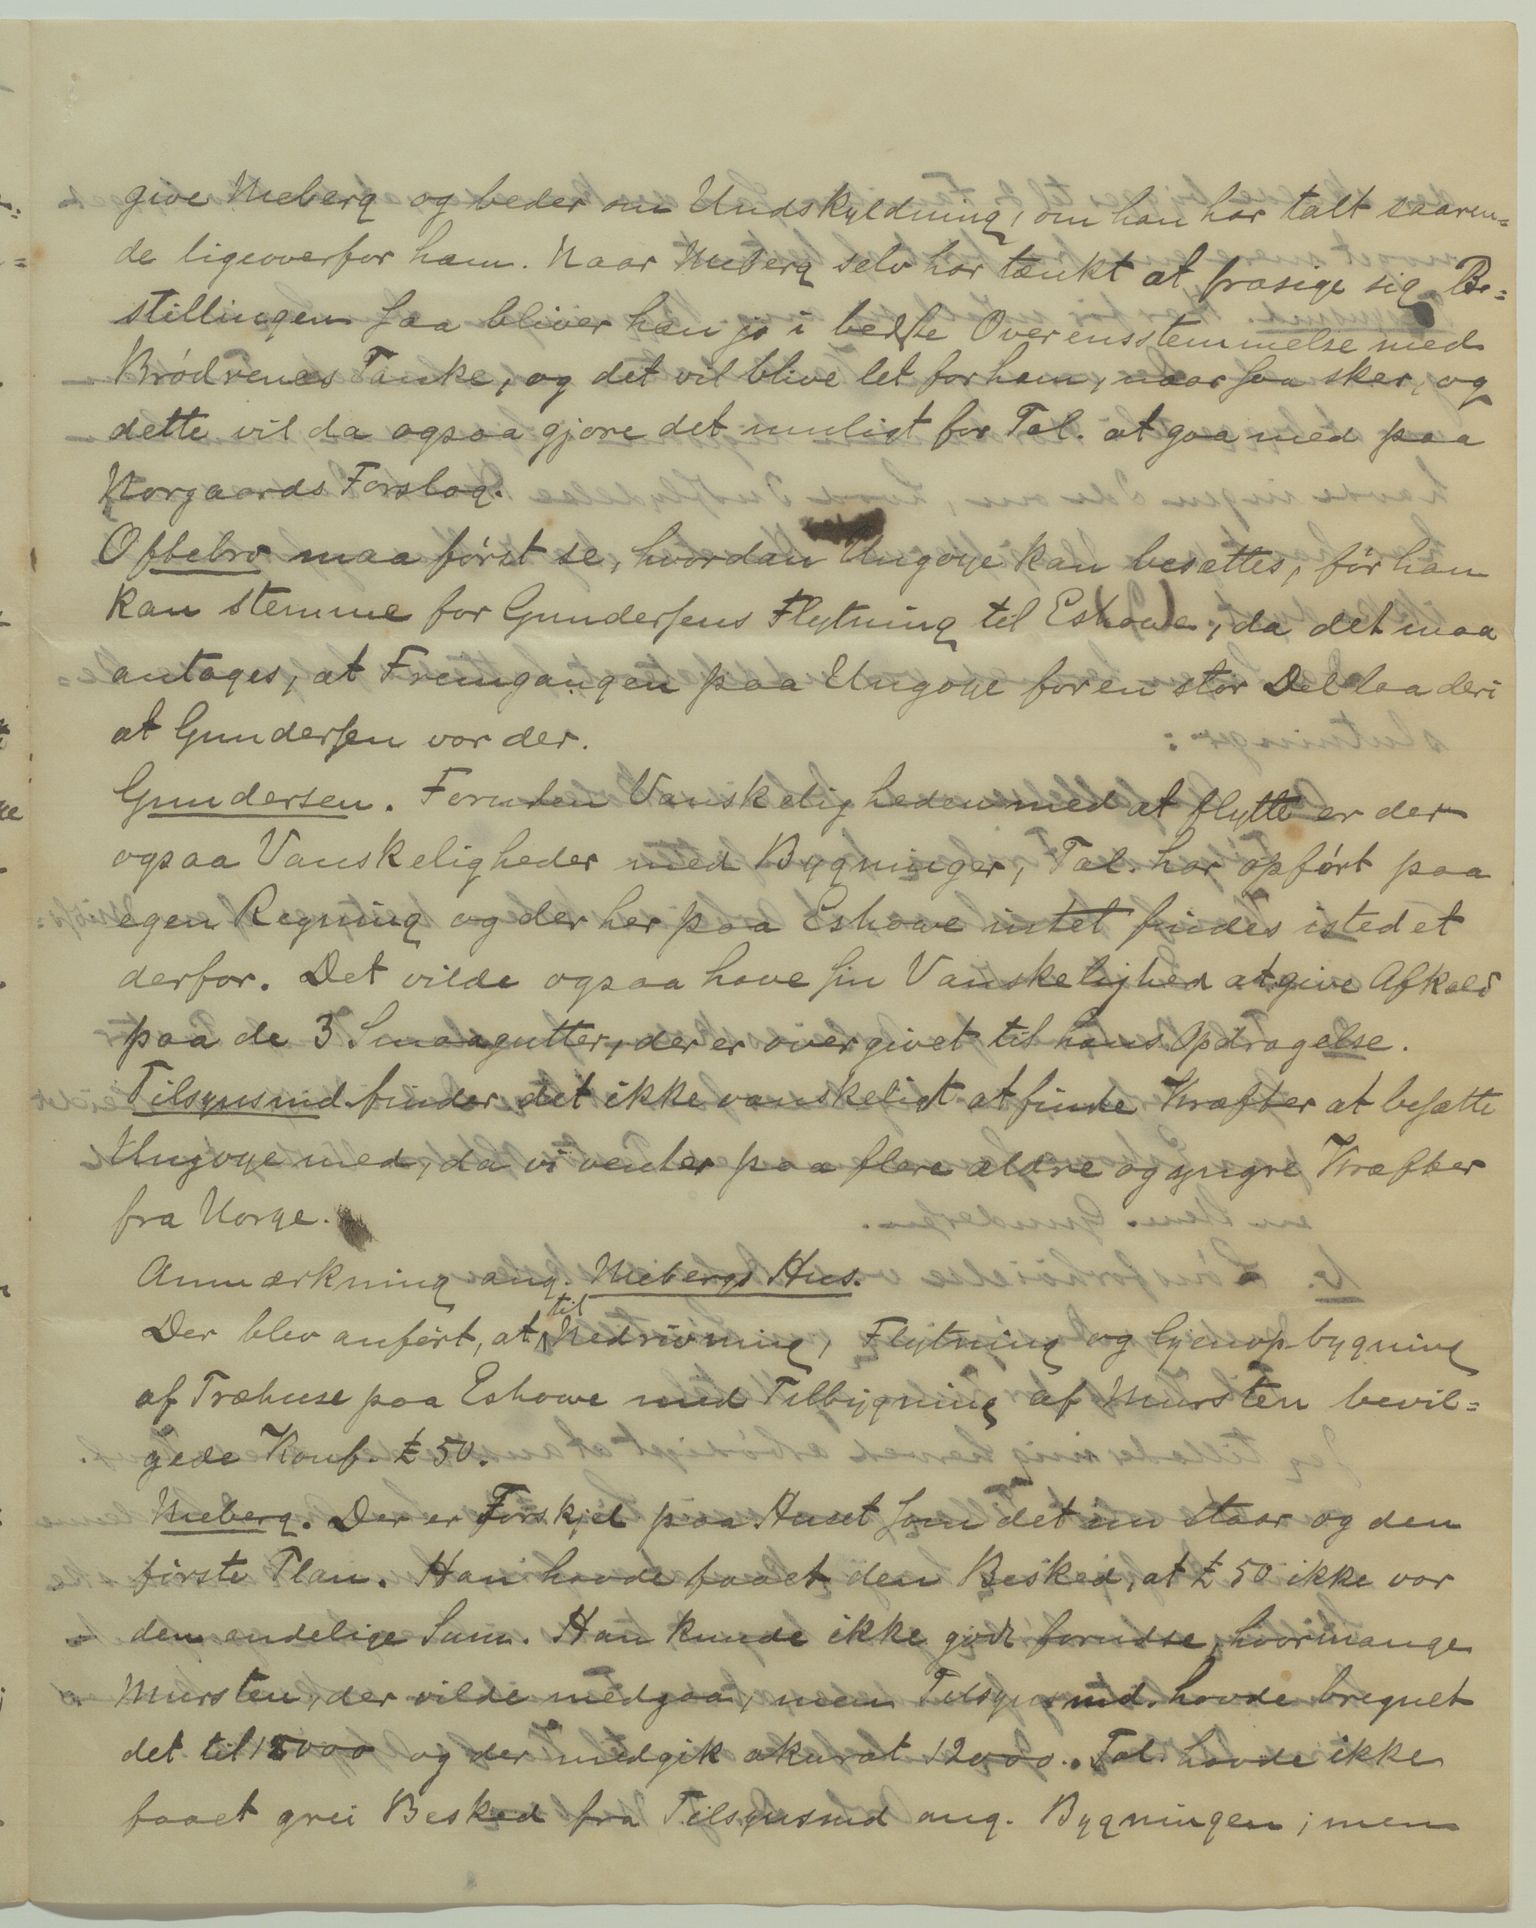 give Meberg og beder om Undskyldning, om han har talt saaren=
de ligeoverfor ham. Naar Meberg selv har tænkt at frasige sig Be=
stillingen saa bliver han jo i bedste Overensstemmelse med
Brødrenes Tanke, og det vil blive let for ham, naar saa sker, og
dette vil da ogsaa gjøre det muligt for Tal. at gaa med paa
Norgaards Forslag.
Oftebro maa først se, hvordan Ungoye kan besættes, før han
kan stemme for Gundersens Flytning til Eshowe, da det maa
antages, at Fremgangen paa Ungoye for en stor Del laa deri
at Gundersen var der.
Gundersen. Foruden Vanskeligheden med at flytte er der
ogsaa Vanskeligheder med Bygninger, Tal. har opført paa
egen Regning og der her paa Eshowe intet findes istedet
derfor. Det vilde ogsaa have sin Vanskelighed at give Afkald
paa de 3 Smaagutter, der er overgivet til hans Opdragelse.
Tilsynsmd. finder det ikke vanskeligt at finde Kræfter at besætte
Ungoye med, da vi venter paa flere ældre og yngre Kræfter
fra Norge.
Anmærkning ang. Mebergs Hus.
Der blev anført, at til Nedrivning, Flytning og Gjenop-bygning
af Træhuse paa Eshowe med Tilbygning af Mursten bevil=
gede Konf. £ 50.
Meberg. Der er Forskjel paa Huset som det nu staar og den
første Plan. Han havde faaet den Besked, at £ 50 ikke var
den endelige Sum. Han kunde ikke godt forudse, hvormange
Mursten, der vilde medgaa, men Tilsynsmd. havde bregnet
det til og der medgik akurat 12000. Tal. havde ikke
faaet grei Besked fra Tilsynsmd ang. Bygningen; men